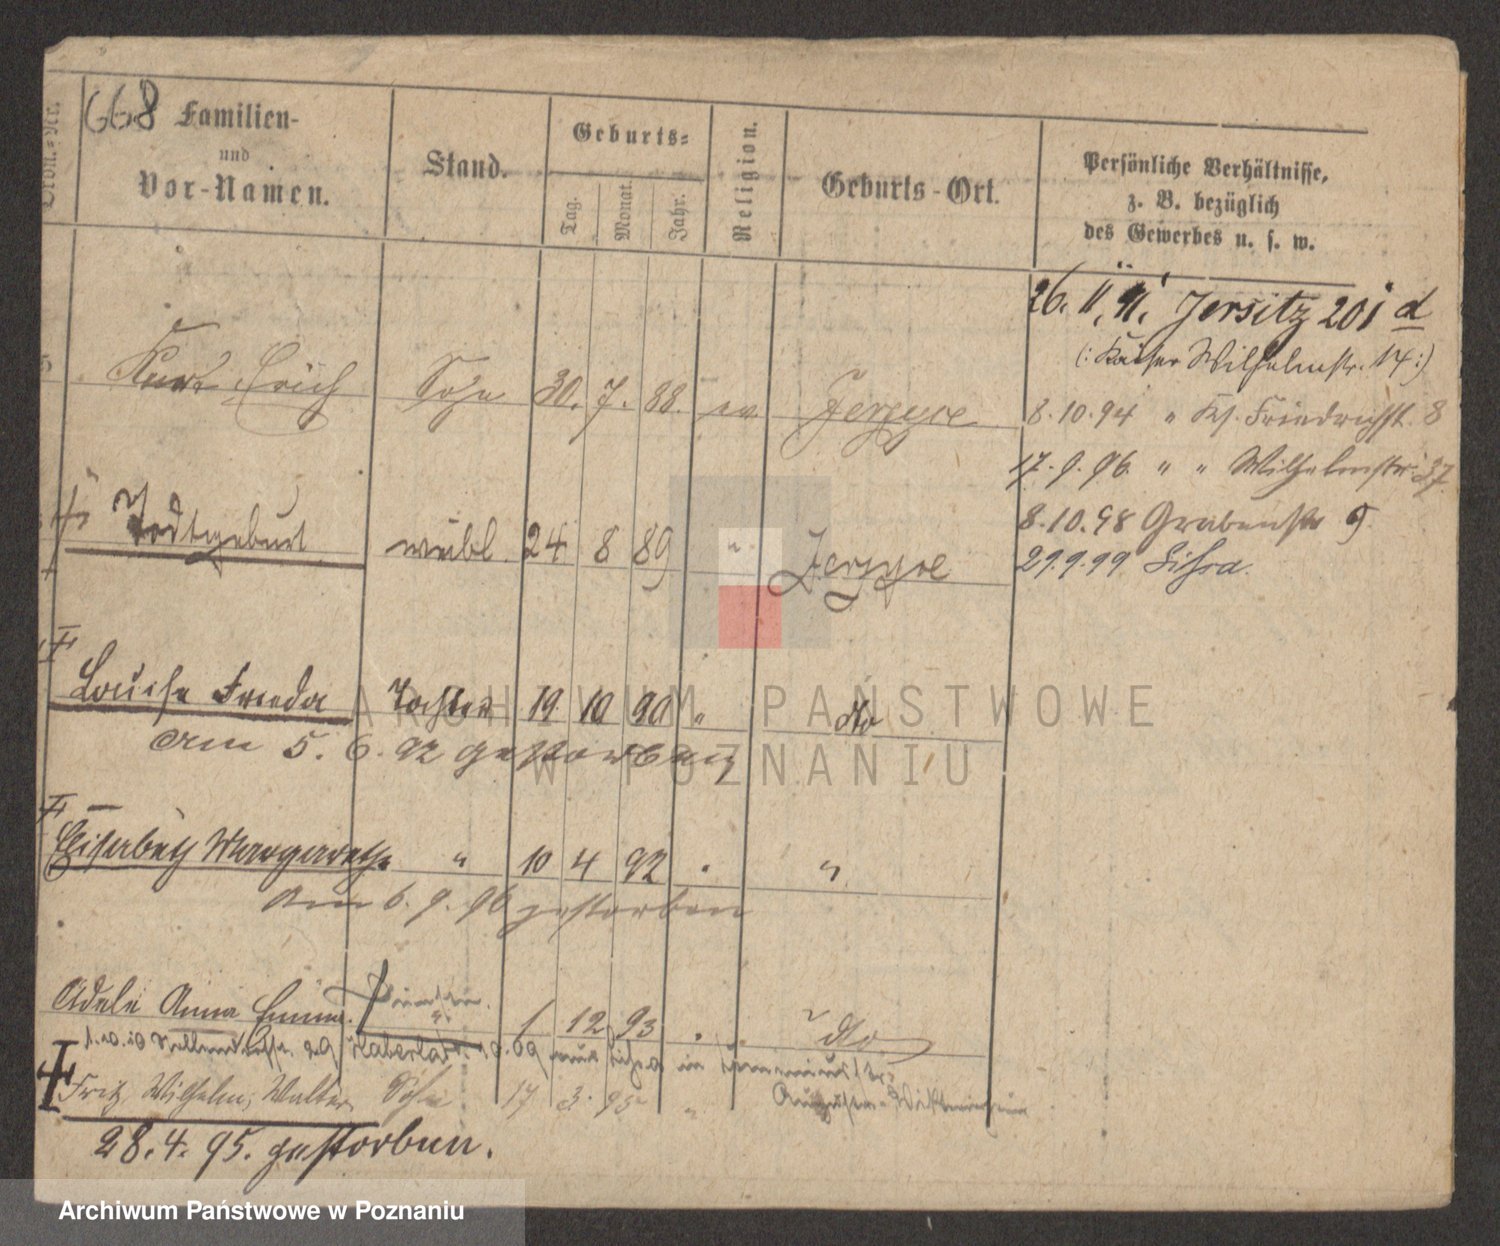 668
Familien-
und
Vor-Namen.
Stand.
Geburts-
Tag.
Monat.
Jahr.
Religion.
Geburts-Ort.
Persönliche Verhältnisse,
z. B. bezüglich
des Gewerbes u. s. w.
26. 11. 91. Jersitz 201 d
(: Kaiser Wilhelmstr. 14 :)
Kurt Erich Sohn 30. 7. 88. ev Jerzyce
8.10.94 " Friedrichst. 8
17.9.96. " " Wilhelmstr. 37
8.10.98 Grabenstr 9
29.9.99 Lissa.
Todtgeburt weibl. 24 8 89 " Jerzyce
Louise Frieda Tochter 19 10 90 " dto
am 5. 6. 92 gestorben
Elisabeth Margarethe " 10 4 92 " "
am 6. 9. 96 gestorben
Adele Anna Emma. 1 12 93 " dto
Fritz, Wilhelm, Walter Sohn 17 3. 95 "
28. 4. 95. gestorben.
ARCHIWUM PAŃSTWOWE
W POZNANIU
Archiwum Państwowe w Poznaniu